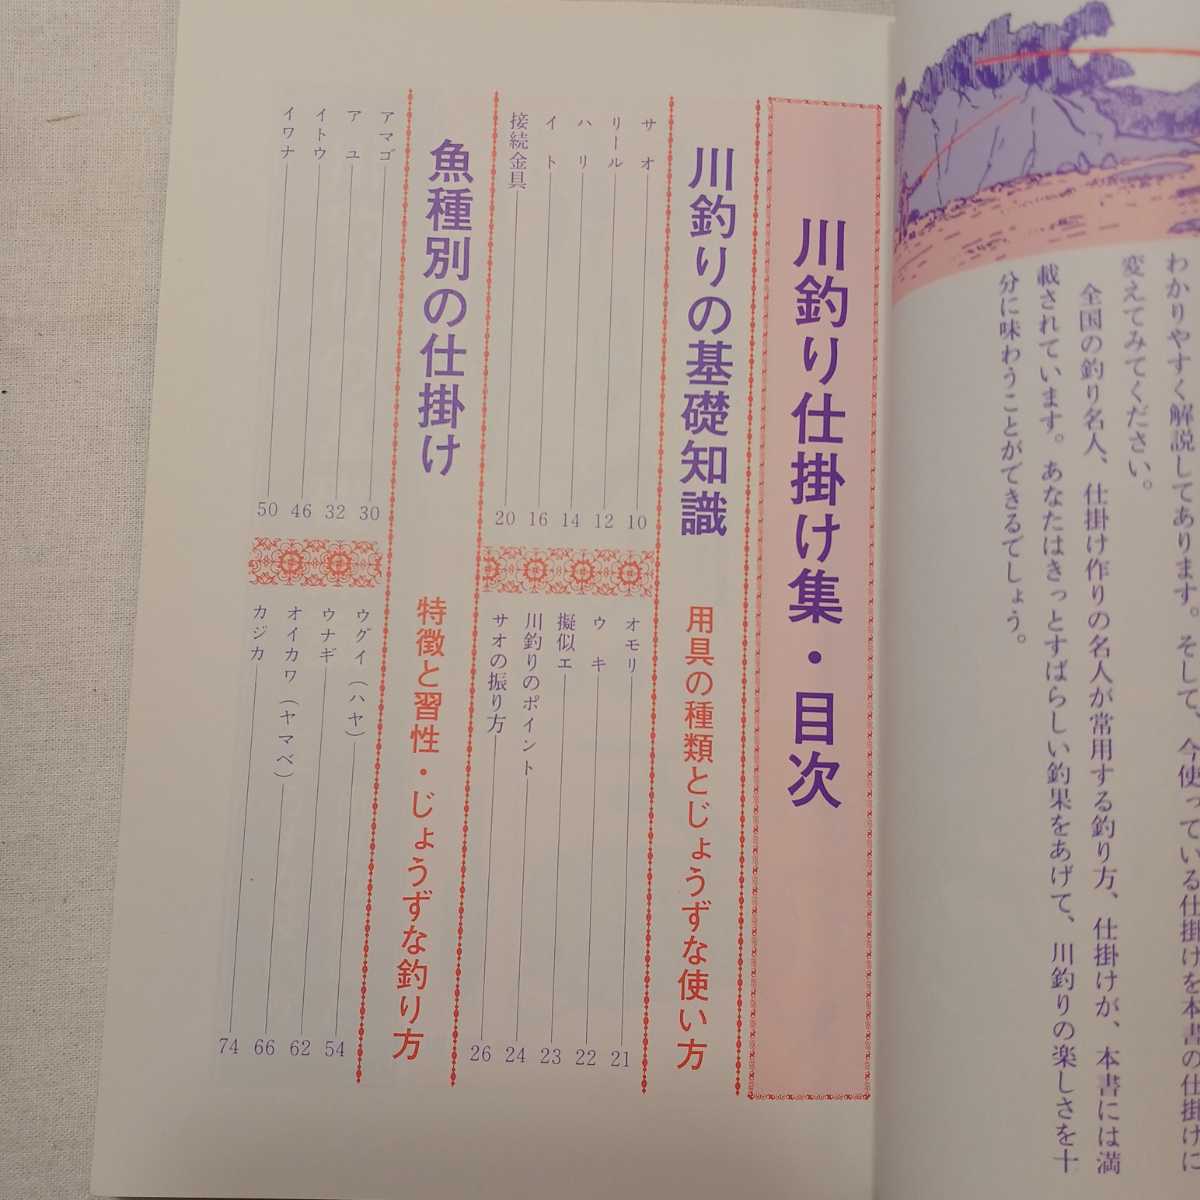 わかりやすく解説してあります。そして、今使っている仕掛けを本書の仕掛けに
変えてみてください。
全国の釣り名人、仕掛け作りの名人が常用する釣り方、仕掛けが、本書には満
載されています。あなたはきっとすばらしい釣果をあげて、川釣りの楽しさを十
分に味わうことができるでしょう。
川釣り仕掛け集・目次
川釣りの基礎知識 用具の種類とじょうずな使い方
サオ 10
リール 12
ハリ 14
イト 16
接続金具 20
オモリ 21
ウキ 22
擬似エ 23
川釣りのポイント 24
サオの振り方 26
魚種別の仕掛け 特徴と習性・じょうずな釣り方
アマゴ 30
アユ 32
イトウ 46
イワナ 50
ウグイ（ハヤ） 54
ウナギ 62
オイカワ（ヤマベ） 66
カジカ 74